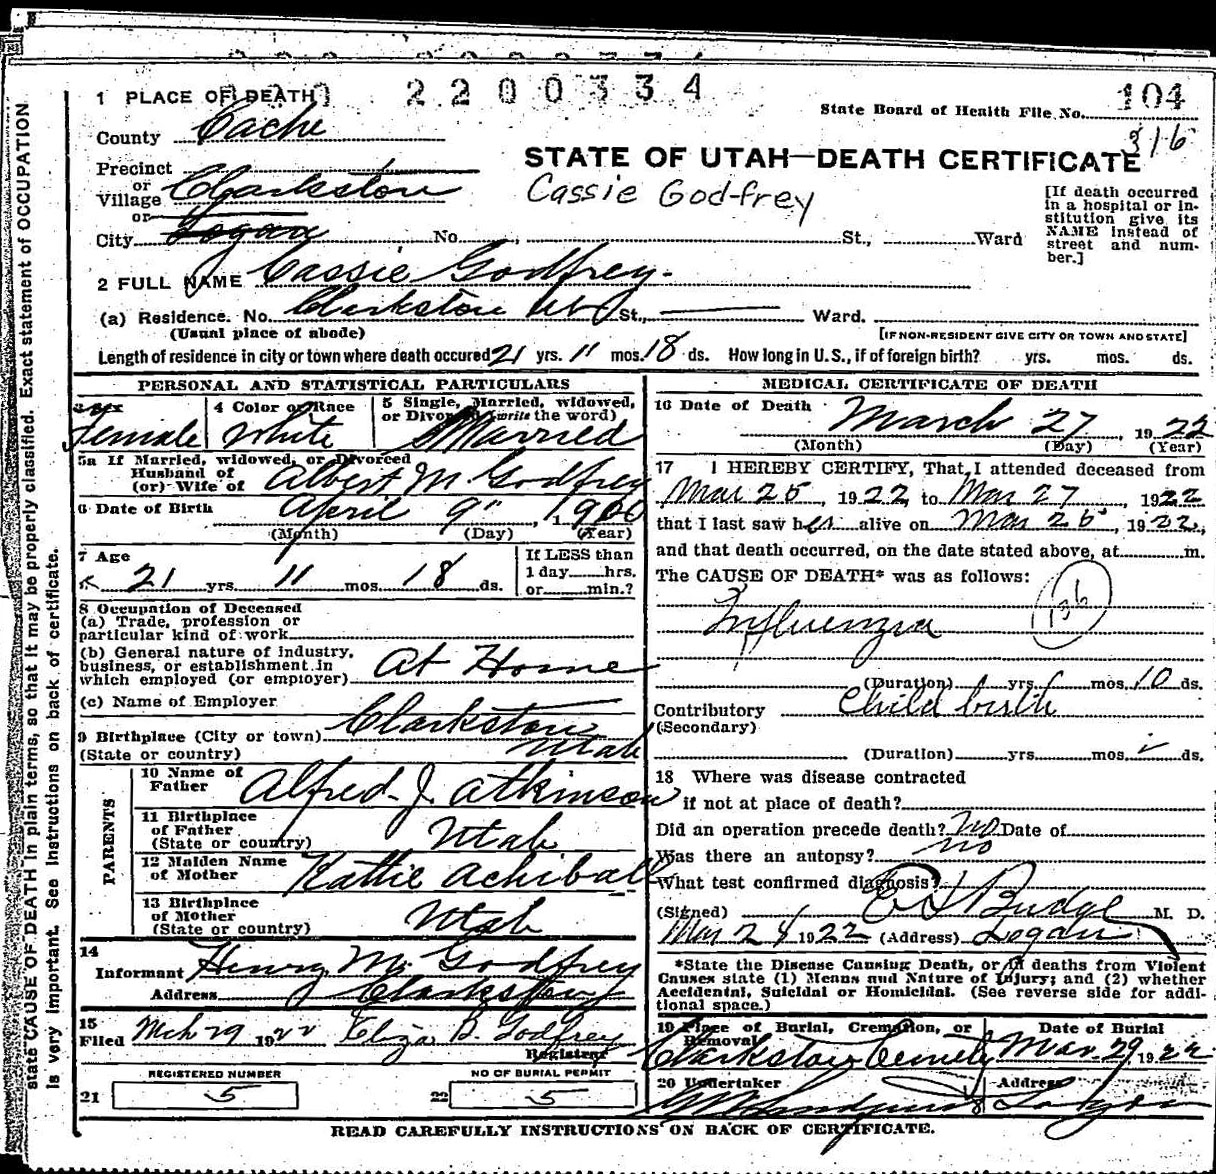 2200334
1 PLACE OF DEATH
State Board of Health File No. 104
316
County Cache
STATE OF UTAH—DEATH CERTIFICATE
Cassie Godfrey
Precinct
or
Village Clarkston
or
City Logan No. St., Ward
[If death occurred
in a hospital or in-
stitution give its
NAME instead of
street and num-
ber.]
2 FULL NAME Cassie Godfrey.
(a) Residence. No. Clarkston St., Ward.
(Usual place of abode)
[IF NON-RESIDENT GIVE CITY OR TOWN AND STATE]
Length of residence in city or town where death occured 21 yrs. 11 mos. 18 ds. How long in U.S., if of foreign birth? yrs. mos. ds.
PERSONAL AND STATISTICAL PARTICULARS
3 Sex Female
4 Color or Race White
5 Single, Married, widowed,
or Divorced (write the word)
Married
5a If Married, widowed, or Divorced
Husband of
(or) Wife of Albert M. Godfrey
6 Date of Birth April 9" 1900
(Month) (Day) (Year)
7 Age
21 yrs. 11 mos. 18 ds.
If LESS than
1 day hrs.
or min.?
8 Occupation of Deceased
(a) Trade, profession or
particular kind of work
(b) General nature of industry,
business, or establishment in
which employed (or employer) At Home
(c) Name of Employer
9 Birthplace (City or town) Clarkston
(State or country) Utah
PARENTS
10 Name of
Father Alfred J. Atkinson
11 Birthplace
of Father
(State or country) Utah
12 Maiden Name
of Mother Kattie Achiball
13 Birthplace
of Mother
(State or country) Utah
14
Informant Henry M. Godfrey
Address Clarkston
15
Filed Mch 29 1922 Eliza B. Godfrey
Registrar
REGISTERED NUMBER
21 5
NO OF BURIAL PERMIT
22 5
MEDICAL CERTIFICATE OF DEATH
16 Date of Death March 27 1922
(Month) (Day) (Year)
17 I HEREBY CERTIFY, That I attended deceased from
Mar 25, 1922 to Mar 27, 1922
that I last saw her alive on Mar 25, 1922,
and that death occurred, on the date stated above, at m.
The CAUSE OF DEATH* was as follows:
136
Influenzia
(Duration) yrs. mos. 10 ds.
Contributory Child birth
(Secondary)
(Duration) yrs. mos. ds.
18 Where was disease contracted
if not at place of death?
Did an operation precede death? No Date of
Was there an autopsy? no
What test confirmed diagnosis?
(Signed) Budge M. D.
Mar 1922 (Address) Logan
*State the Disease Causing Death, or in deaths from Violent
Causes state (1) Means and Nature of Injury; and (2) whether
Accidental, Suicidal or Homicidal. (See reverse side for addi-
tional space.)
19 Place of Burial, Cremation, or
Removal
Date of Burial
Clarkston Mar. 29, 1922
20 Undertaker Address
Logan
READ CAREFULLY INSTRUCTIONS ON BACK OF CERTIFICATE.
state CAUSE OF DEATH in plain terms, so that it may be properly classified. Exact statement of OCCUPATION
is very important. See instructions on back of certificate.